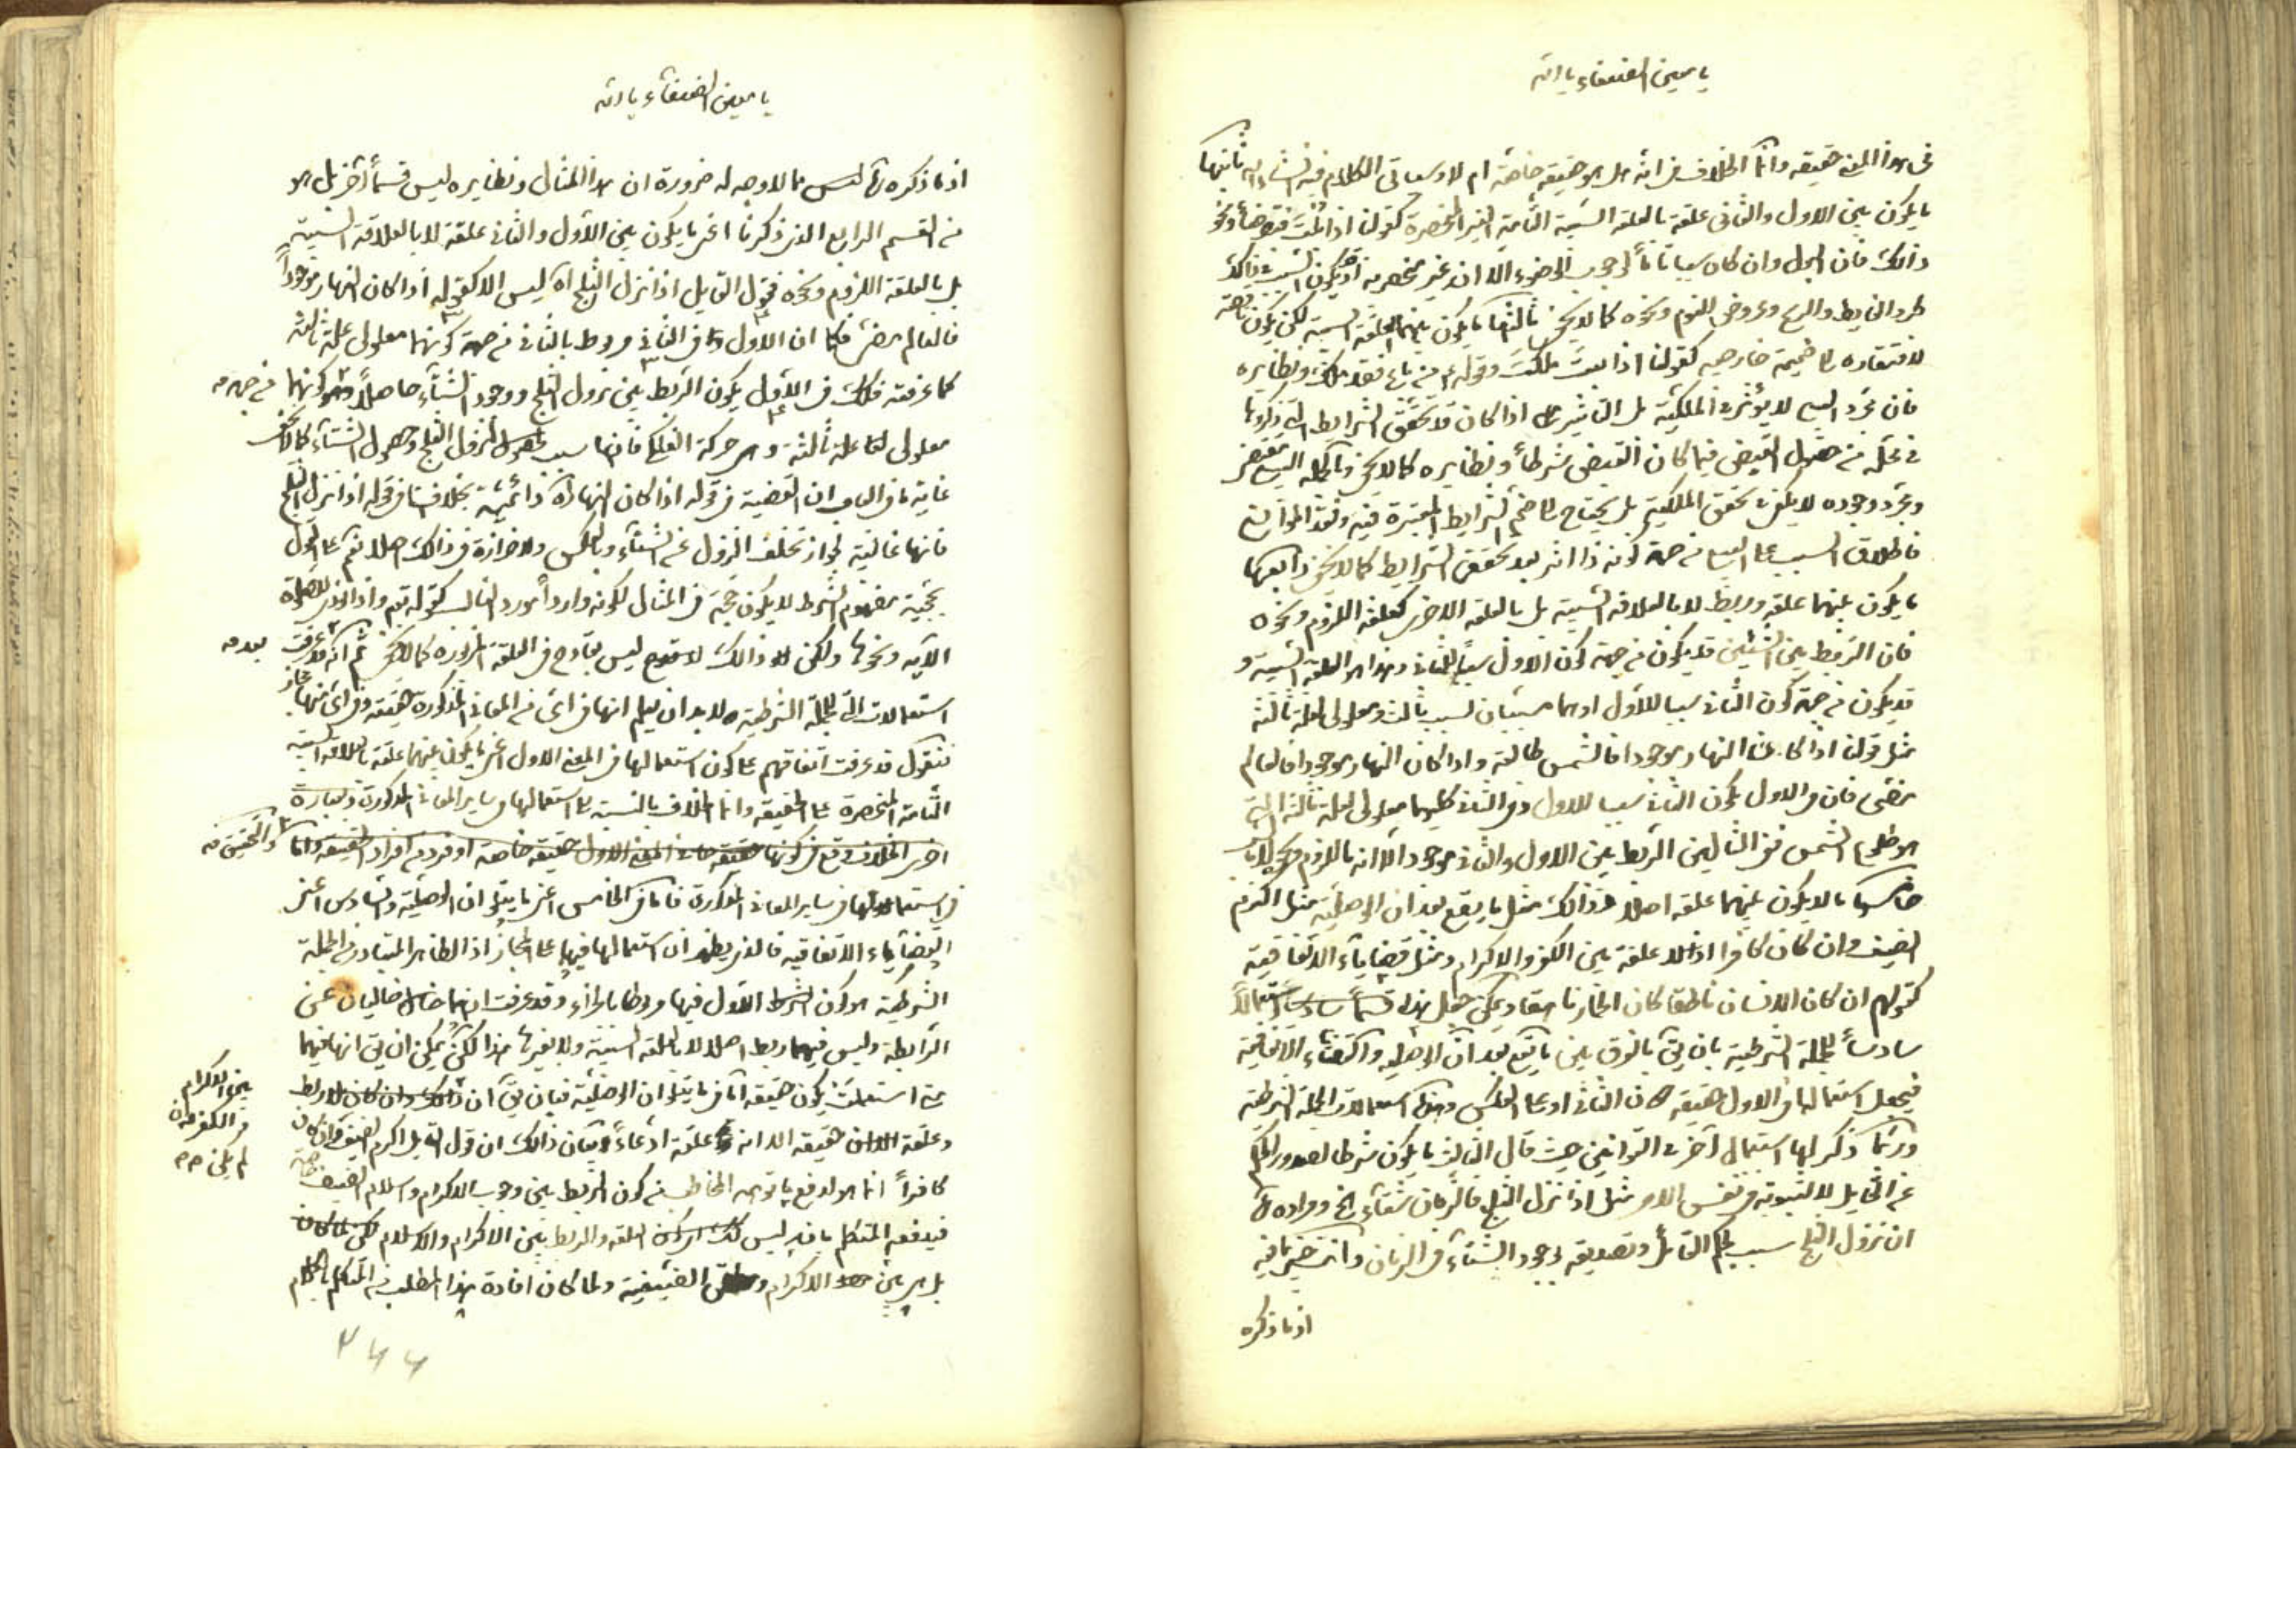 يا معين الضعفاء يا الله
في هذا المعنى حقيقة وانما الخلاف في انه هل هو حقيقة خاصة ام لا وسياتي الكلام فيه انشاء الله ثانيها
ما يكون بين الاول والثاني علقة بالعلقة السببية التامة الغير المنحصرة كقولنا اذا بلت فتوضأ ونحو
ذالك فان البول وان كان سببا تاما لوجوب الوضوء الا انه غير منحصر فيه اذ قد يكون السبب
والريح وعروض النوم ونحوه كما لا يخفى ثالثها ما يكون بينهما العلقة السببية لكن يكون ناقصة
لافتقاره الى ضميمة خارجية كقولنا اذا بعت ملكت وقوله من باع فقد ملك ونظايره
فان مجرد البيع لا يؤثر في الملكية بل التاثير اذا كان قد تحقق الشرايط التي ذكروها
في محله من حصول القبض فيما كان القبض شرطا ونظايره كما لا يخفى وبالجملة البيع مقتض
ومجرد وجوده لا يكفي في تحقق الملكية بل يحتاج الى ضم الشرايط المعتبرة فيه وفقد الموانع
فاطلاق السبب على البيع من جهة كونه ذا اثر بعد تحقق الشرايط كما لا يخفى رابعها
ما يكون بينهما علقة وربط لا بالعلاقة السببية بل بالعلقة الاخرى كعلقة اللزوم ونحوه
فان الربط بين الشيئين قد يكون من جهة كون الاول سببا للثاني وهذا هو العلقة السببية و
قد يكون من جهة كون الثاني سببا للاول او هما مسببان لسبب ثالث ومعلولي لعلة ثالثة
مثل قولنا اذا كان النهار موجودا فالشمس طالعة واذا كان النهار موجودا فالعالم
مضيء فان في الاول يكون الثاني سببا للاول وفي الثاني كليهما معلولي لعلة ثالثة التي
هو طلوع الشمس ففي المثالين الربط بين الاول والثاني موجود الا انه باللزوم ونحوه لا بالسببية
خامسها ما لا يكون بينهما علقة اصلا وذالك مثل ما يقع بعد ان الوصلية مثل اكرم
الضيف وان كان كافرا اذ لا علقة بين الكفر والاكرام ومثل قضاياء الاتفاقية
كقولهم ان كان الانسان ناطقا كان الحمار ناهقا ويمكن جعل هذا قسما سادسا استعمالا
سادسا للجملة الشرطية بان يق بالفرق بين ما يقع بعد ان الوصلية والقضاياء الاتفاقية
فيجعل استعمالها في الاول حقيقة دون الثاني او على العكس وهذه استعمالات الجملة الشرطية
وربما ذكر لها استعمال آخر في القوانين حيث قال الثالث ما يكون شرطا لصدور الحكم
عن القايل لا لثبوته في نفس الامر مثل اذا نزل الثلج فالزمان شتاء الخ ومراده
ان نزول الثلج سبب لحكم القائل وتصديقه بوجود الشتاء في الزمان وانت خبير بما فيه
اذ ما ذكره
يا معين الضعفاء يا الله
اذ ما ذكره مما لا وجه له ضرورة ان هذا المثال ونظايره ليس قسما آخر بل هو
من القسم الرابع الذي ذكرنا اعني ما يكون بين الاول والثاني علقة لا بالعلاقة السببية
بل بالعلقة اللزوم ونحوه فقول القايل اذا نزل الثلج اه ليس الا كقوله اذا كان النهار موجودا
فالعالم مضيء فكما ان الاول في الثاني مربوط بالثاني من جهة كونهما معلولي علة ثالثة
كما عرفته فكذلك في الاول يكون الربط بين نزول الثلج ووجود الشتاء حاصلا كونهما من جهة
معلولي علة ثالثة وهي حركة الفلك فانها سبب لنزول الثلج وحصول الشتاء كما لا يخفى
غاية ما في الباب ان القضية في قوله اذا كان النهار اه دائمية بخلافها في قوله اذا نزل الثلج
فانها غالبية لجواز تخلف النزول عن الشتاء وبالعكس ولا حزازة في ذالك اصلا نعم على القول
بحجية مفهوم الشرط لا يكون حجة في المثال لكونه واردا مورد الغالب كقوله تع واذا نودي للصلوة
الآية ونحوها ولكن ذالك ليس بقادح في العلقة المزبورة كما لا يخفى ثم انك قد عرفت بعد
استعمالات الجملة الشرطية لا بد ان يعلم انها في اي من المعاني المذكورة حقيقة وفي اي منها مجاز
فنقول قد عرفت اتفاقهم على كون استعمالها في المعنى الاول اعني ما يكون بينهما علقة بالعلاقة السببية
التامة المنحصرة على الحقيقة وانما الخلاف بالنسبة الى استعمالها في ساير المعاني المذكورة وبعبارة
اخرى الخلاف وقع في كونها حقيقة في المعنى الاول حقيقة خاصة او فرد من افراد الحقيقة واما والتحقيق
في استعمالها في ساير المعاني المذكورة فاما في الخامس اعني ما يتلو ان الوصلية والسادس اعني
القضاياء الاتفاقية فالذي يظهر ان استعمالها فيها على المجاز اذ الظاهر المتبادر من الجملة
الشرطية هو كون الشرط الاول فيها مربوطا بالجزاء وقد عرفت انهما خاليان عن
الرابطة وليس فيهما ربط اصلا لا بالعلقة السببية ولا بغيرها هذا لكن يمكن ان يق انها فيهما
استعملت يكون حقيقة اما في ما يتلو ان الوصلية فبان يق ان ذالك وان كان لا ربط
بين الاكرام
والكفر
لم يكن
وعلقة حقيقة الا انه علقة ادعاء وبيان ذالك ان قول القايل اكرم الضيف وان كان
كافرا انما هو لدفع ما توهمه المخاطب من كون الربط بين وجوب الاكرام واسلام الضيف
فيدفعه المتكلم بانه ليس كذلك العلقة والربط بين الاكرام والاسلام
بل هي بين الاكرام الضيفية ولما كان افادة هذا المطلب من المتكلم
۲۶۶